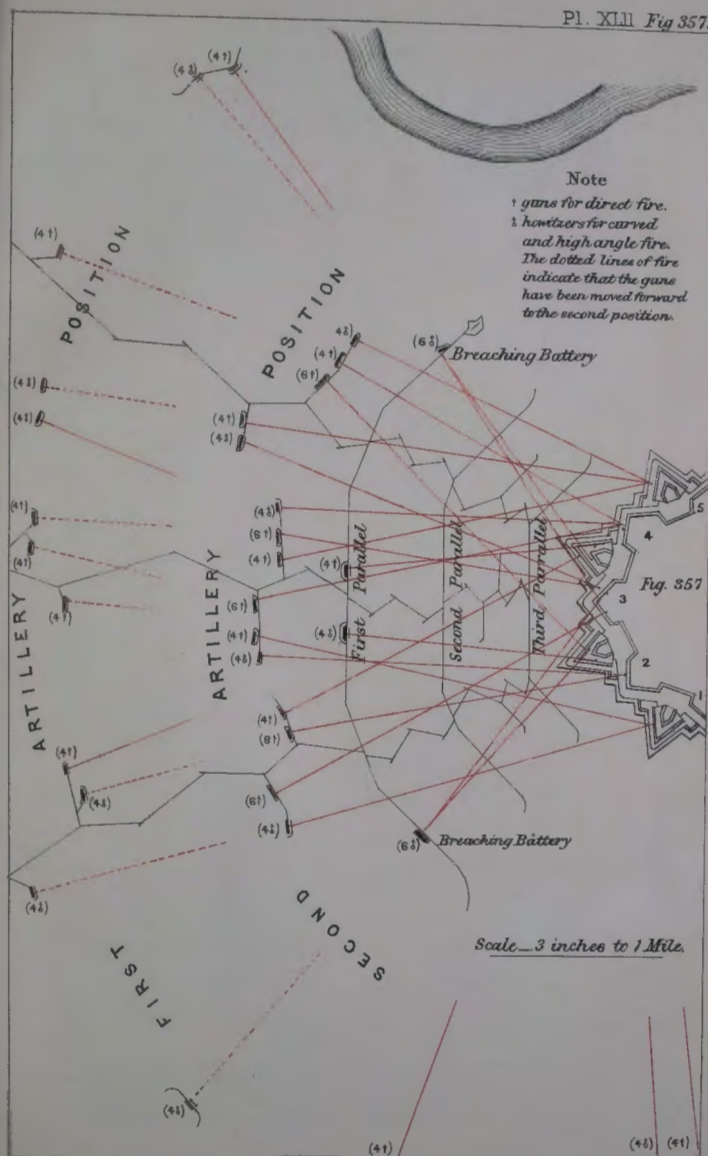 Pl. XLII Fig 357.
(4⚨) (4†)
Note
† guns for direct fire.
⚨ howitzers for curved
and high angle fire.
The dotted lines of fire
indicate that the guns
have been moved forward
to the second position.
(4†)
POSITION
POSITION
4⚨
(4†)
(6†)
(6⚨)
Breaching Battery
(4⚨)
(4⚨)
(4†)
(4⚨)
5
4
(4†)
(4†)
(4⚨)
(6†)
(4†)
(4†)
First Parallel
Second Parallel
Third Parrallel
Fig. 357
3
(4†)
(6†)
(4†)
(4⚨)
(4⚨)
2
1
ARTILLERY
ARTILLERY
(4†)
(4⚨)
(4†)
(8†)
(6†)
(4⚨)
(6⚨)
Breaching Battery
(4⚨)
SECOND
FIRST
Scale_3 inches to 1 Mile.
(4⚨)
(4†)
(4⚨) (4†)